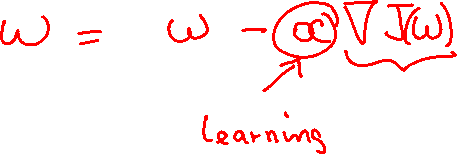 ω = ω - α ∇ J(ω)
Learning